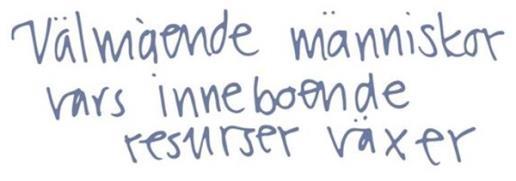 Välmående människor
vars inneboende
resurser växer